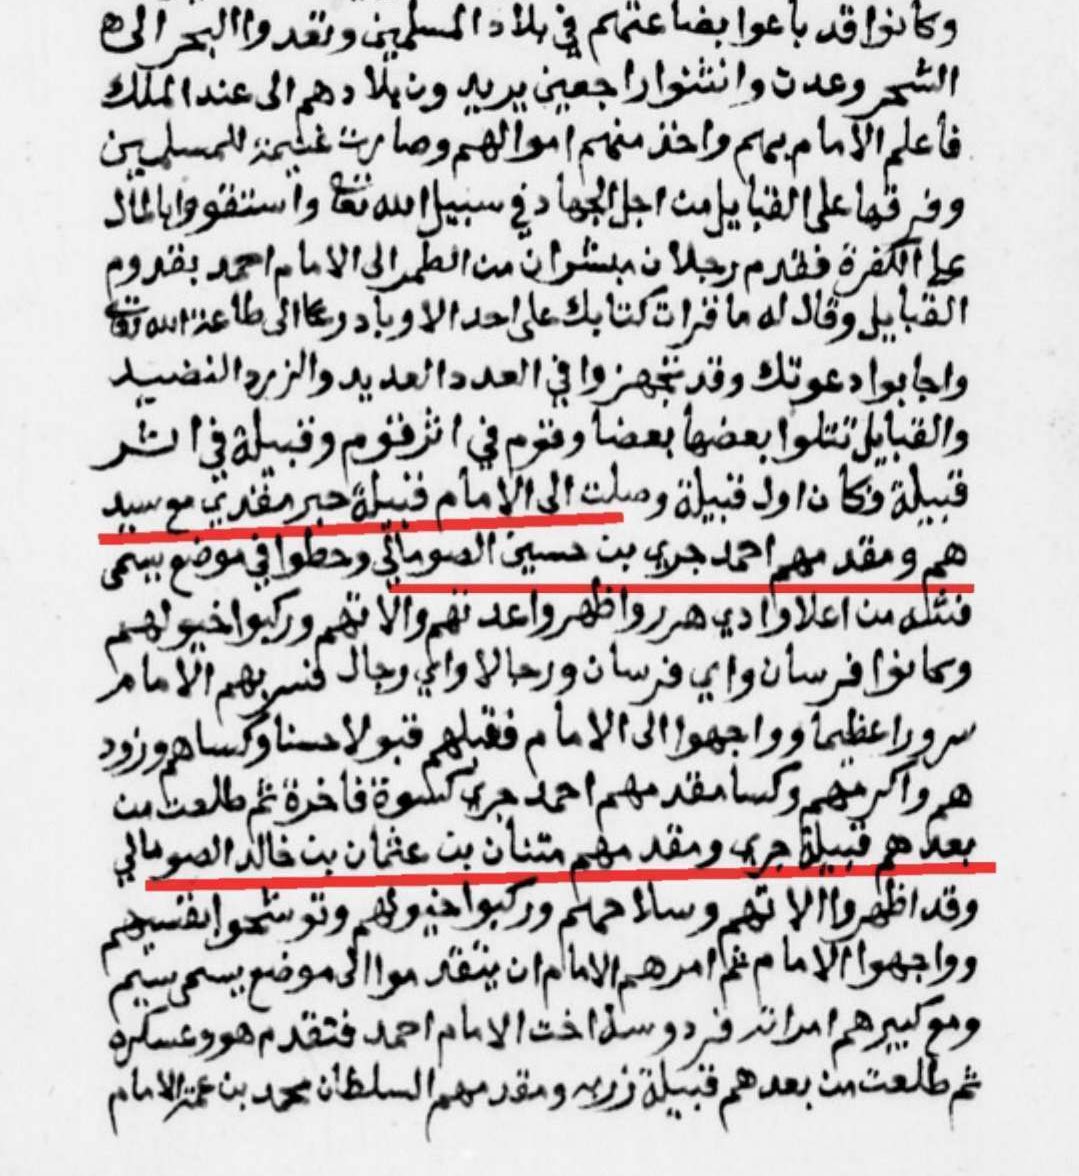 وكانوا قد باعوا بضاعتهم في بلاد المسلمين وتعدوا البحر الى
الشحر وعدن وانثنوا راجعين يريدون بلادهم الى عند الملك
فأعلم الامام بهم واخذ منهم اموالهم وصارت غنيمة للمسلمين
وفرقها على القبايل من اجل الجهاد في سبيل الله تعا واستنفقوا بالمال
على الكفرة فقدم رجلان مبشران من الطهر الى الامام احمد بقدوم
القبايل وقال له ما قرات كتابك على احد الا وبادر عا الى طاعة الله تعا
واجابوا دعوتك وقد تجهزوا في العدد العديد والزرد النضيد
والقبايل تتلوا بعضها بعضا وقوم في اثر قوم وقبيلة في اشر
قبيلة فكان اول قبيلة وصلت الى الامام قبيلة حبر مقدي مع سيد
هم ومقدمهم احمد جري بن حسين الصومالي وحطوا في موضع يسمى
من اعلا وادي هرر واظهروا عدتهم والاتهم وركبوا خيولهم
وكانوا فرسان واي فرسان ورجالا واي رجال فسر بهم الامام
سرورا عظيما وواجهوا الى الامام فقبلهم قبولا حسنا وكساهم وزود
هم واكرمهم وكسا مقدمهم احمد جري كسوة فاخرة ثم طلعت من
بعدهم قبيلة جري ومقدمهم متان بن عثمان بن خالد الصومالي
وقد اظهروا الاتهم وسلاحهم وركبوا خيولهم وتوشحوا بقسيهم
وواجهوا الامام ثم امرهم الامام ان يتقدموا الى موضع يسمى سيم
ومع كبيرهم امراته فردوسة اخت الامام احمد فتقدم هو وعسكره
ثم طلعت من بعدهم قبيلة زربه ومقدمهم السلطان محمد بن عمة الامام